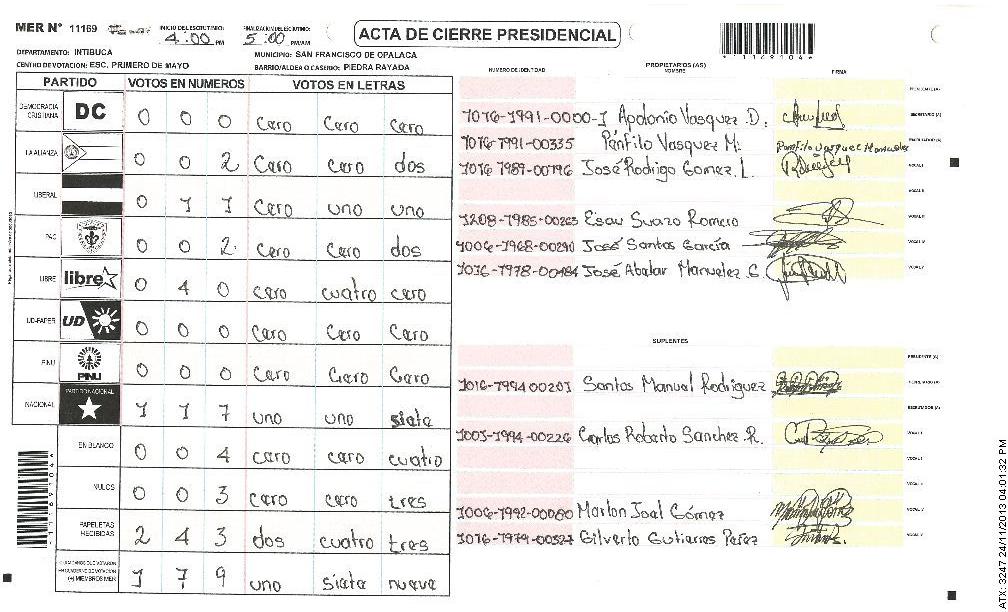 MER N° 11169 INICIO DE ESCRUTINIO: 4:00 PM FINALIZACION DE ESCRUTINIO: 5:00 PM/AM
ACTA DE CIERRE PRESIDENCIAL
DEPARTAMENTO: INTIBUCA MUNICIPIO: SAN FRANCISCO DE OPALACA
CENTRO DE VOTACION: ESC. PRIMERO DE MAYO BARRIO/ALDEA O CASERIO: PIEDRA RAYADA
PARTIDO VOTOS EN NUMEROS VOTOS EN LETRAS
DEMOCRACIA CRISTIANA DC 0 0 0 Cero Cero Cero
LA ALIANZA 0 0 2 Cero Cero dos
LIBERAL 0 1 1 Cero uno uno
PAC 0 0 2 Cero Cero dos
LIBRE libre 0 4 0 cero cuatro cero
UD-FAPER UD 0 0 0 Cero Cero Cero
PINU PINU 0 0 0 Cero Cero Cero
NACIONAL PARTIDO NACIONAL 1 1 7 uno uno siete
EN BLANCO 0 0 4 cero cero cuatro
NULOS 0 0 3 cero cero tres
PAPELETAS RECIBIDAS 2 4 3 dos cuatro tres
(+) MIEMBROS MER 1 7 9 uno siete nueve
NUMERO DE IDENTIDAD PROPIETARIOS (AS) NOMBRE FIRMA
PRESIDENTE (A)
Apolonio Vasquez D. SECRETARIO (A)
1016-1991-00335 Pánfilo Vasquez M. Panfilo Vasquez Manueles ESCRUTADOR (A)
1016 1987-00796 José Rodrigo Gomez. L. VOCAL I
VOCAL II
1208-1985-00263 Esau Suazo Romero
1006-1968-00290 José Santos García VOCAL IV
1016-1978-00484 José Abalar Manuelez G VOCAL V
SUPLENTES
PRESIDENTE (A)
1016-1994 00201 Santos Manuel Rodriguez SECRETARIO (A)
ESCRUTADOR (A)
1003-1994-00226 Carlos Roberto Sanchez. R. VOCAL I
1006-1992-00080 Marlon Joal Gómez
1016-1979-00327 Gilverto Gutierres Perez VOCAL V
*11169104*
ATX: 3247 24/11/2013 04:01:32 PM